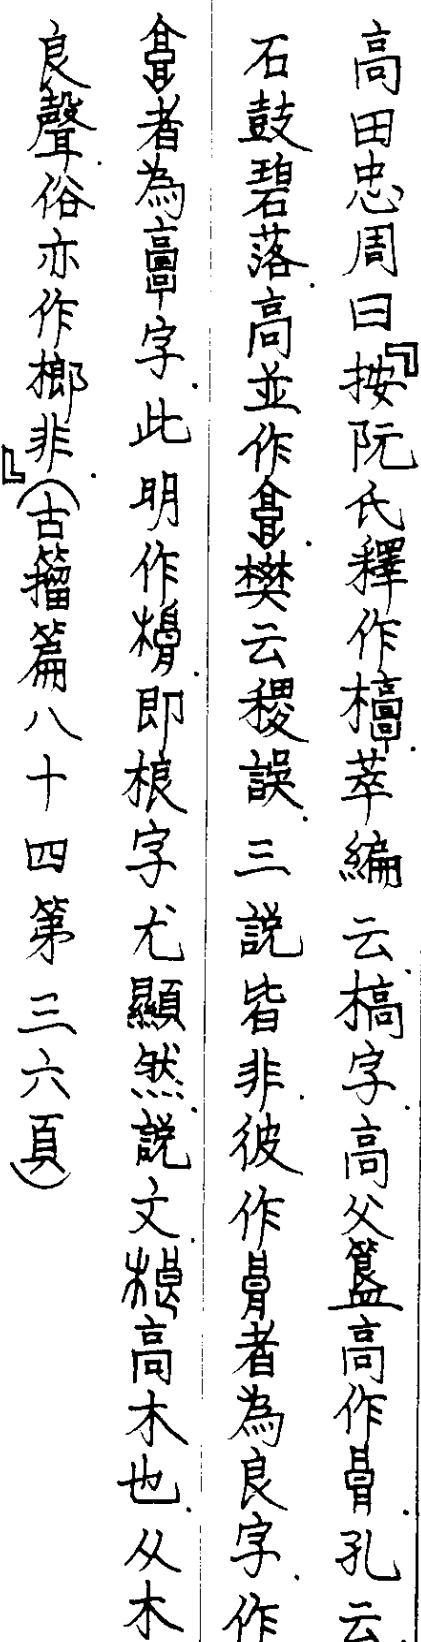 高田忠周曰『按阮氏釋作𣞁.萃編云.槁字.高父簋高作.孔云.
石鼓碧落.高並作.樊云稷誤.三說皆非.彼作者為良字.作
者為𩫖字.此明作.即桹字尤顯然.說文.高木也.从木
良聲.俗亦作榔非.』(古籀篇八十四第三六頁)